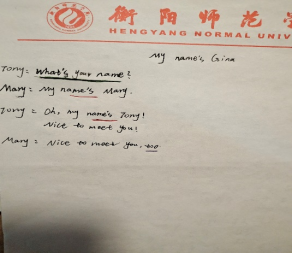 衡阳师范学
HENGYANG NORMAL UNIV
My name's, Gina
Tony: What's your name?
Mary: My name's Mary.
Tony: Oh, my name's Tony!
Nice to meet you!
Mary: Nice to meet you, too